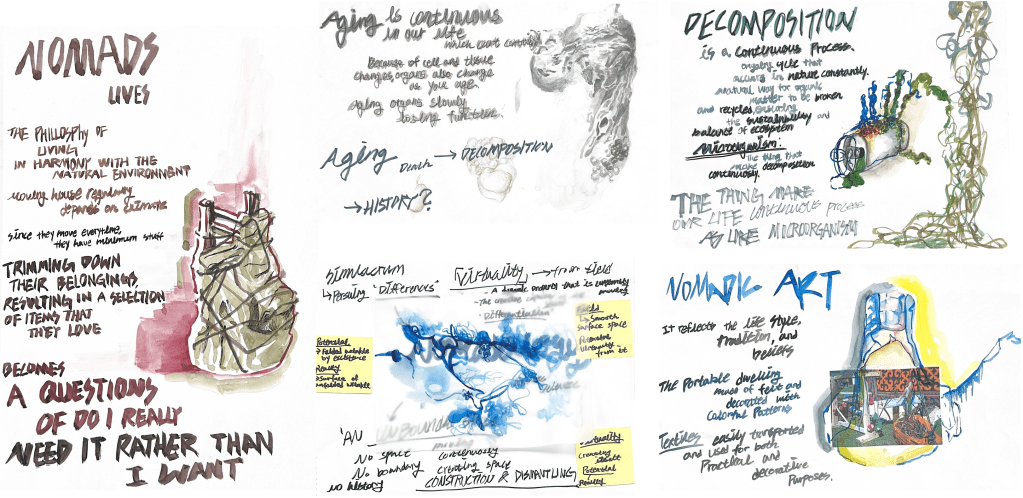 NOMADS
LIVES
THE PHILOSOPHY OF
LIVING
IN HARMONY WITH THE
NATURAL ENVIRONMENT
moving house regularly
depends on
since they move everytime,
they have minimum stuff
TRIMMING DOWN
THEIR BELONGINGS,
RESULTING IN A SELECTION
OF ITEMS THAT
THEY LOVE
BECOMES
A QUESTIONS
OF DO I REALLY
NEED IT RATHER THAN
I WANT
Aging is continuous
in our life
which can't control
Because of cell and tissue
changes, organs also change
as you age.
Aging organs slowly
losing function.
Aging Death → DECOMPOSITION
→ HISTORY?
DECOMPOSITION
is a continuous process.
ongoing cycle that
occurs in nature constantly.
a natural way for organic
matter to be broken
and recycled, ensuring
the sustainability and
balance of ecosystem
microorganism:
the thing that
make decomposition
continuously.
THE THING MAKE
OUR LIFE CONTINUOUS PROCESS
AS LIKE MICROORGANISM
Simulacrum
↳ Persuing 'Differences'
Virtuality → from field
- A dynamic property that is
- The
Differentiation
↳ Smooth
surface space
Potential
Virtuality
from it
Potential
Reality
'AN UNBOUNDED
No space continuously
No boundary creating space
no history CONSTRUCTION & DISMANTLING
Virtuality
Potential
Reality
NOMADIC ART
It reflects the life style,
tradition, and
beliefs
The Portable dwelling
made of felt and
decorated with
Colorful Patterns
Textiles easily transported
and used for both
Practical and
decorative
Purposes.